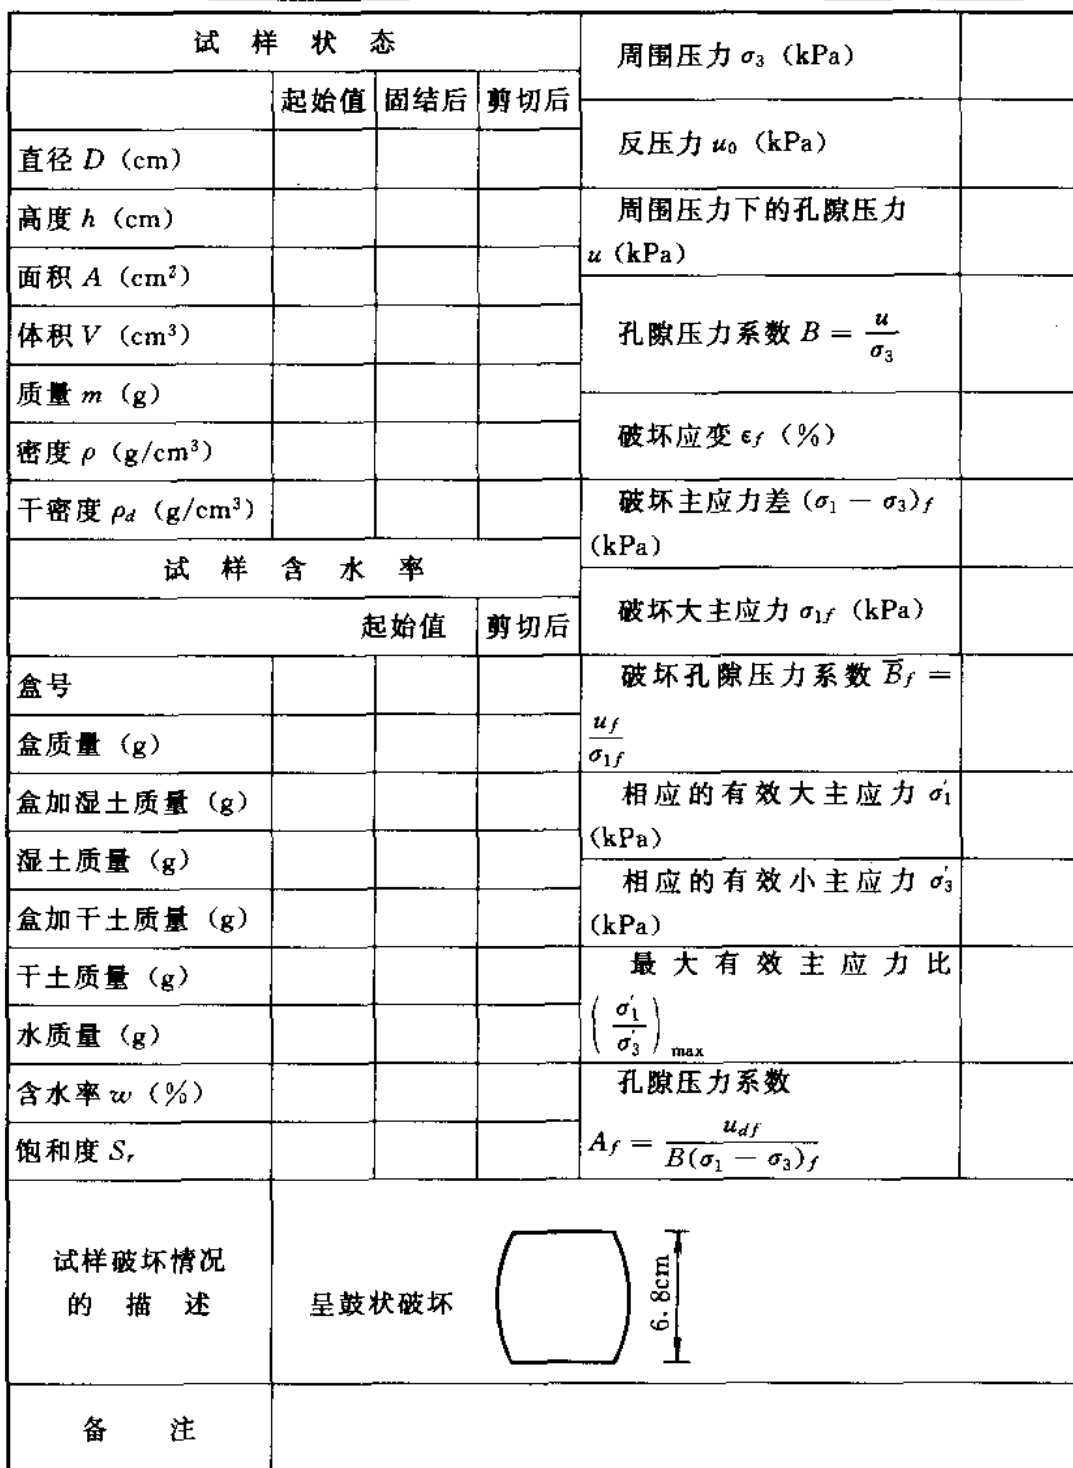 试样状态
起始值 固结后 剪切后
直径 D (cm)
高度 h (cm)
面积 A (cm²)
体积 V (cm³)
质量 m (g)
密度 ρ (g/cm³)
干密度 ρd (g/cm³)
试样含水率
起始值 剪切后
盒号
盒质量 (g)
盒加湿土质量 (g)
湿土质量 (g)
盒加干土质量 (g)
干土质量 (g)
水质量 (g)
含水率 w (%)
饱和度 Sr
周围压力 σ3 (kPa)
反压力 u0 (kPa)
周围压力下的孔隙压力
u (kPa)
孔隙压力系数 B = u/σ3
破坏应变 εf (%)
破坏主应力差 (σ1 − σ3)f
(kPa)
破坏大主应力 σ1f (kPa)
破坏孔隙压力系数 B̄f =
uf/σ1f
相应的有效大主应力 σ′1
(kPa)
相应的有效小主应力 σ′3
(kPa)
最大有效主应力比
(σ′1/σ′3)max
孔隙压力系数
Af = udf/B(σ1 − σ3)f
试样破坏情况
的描述
呈鼓状破坏
6.8cm
备注